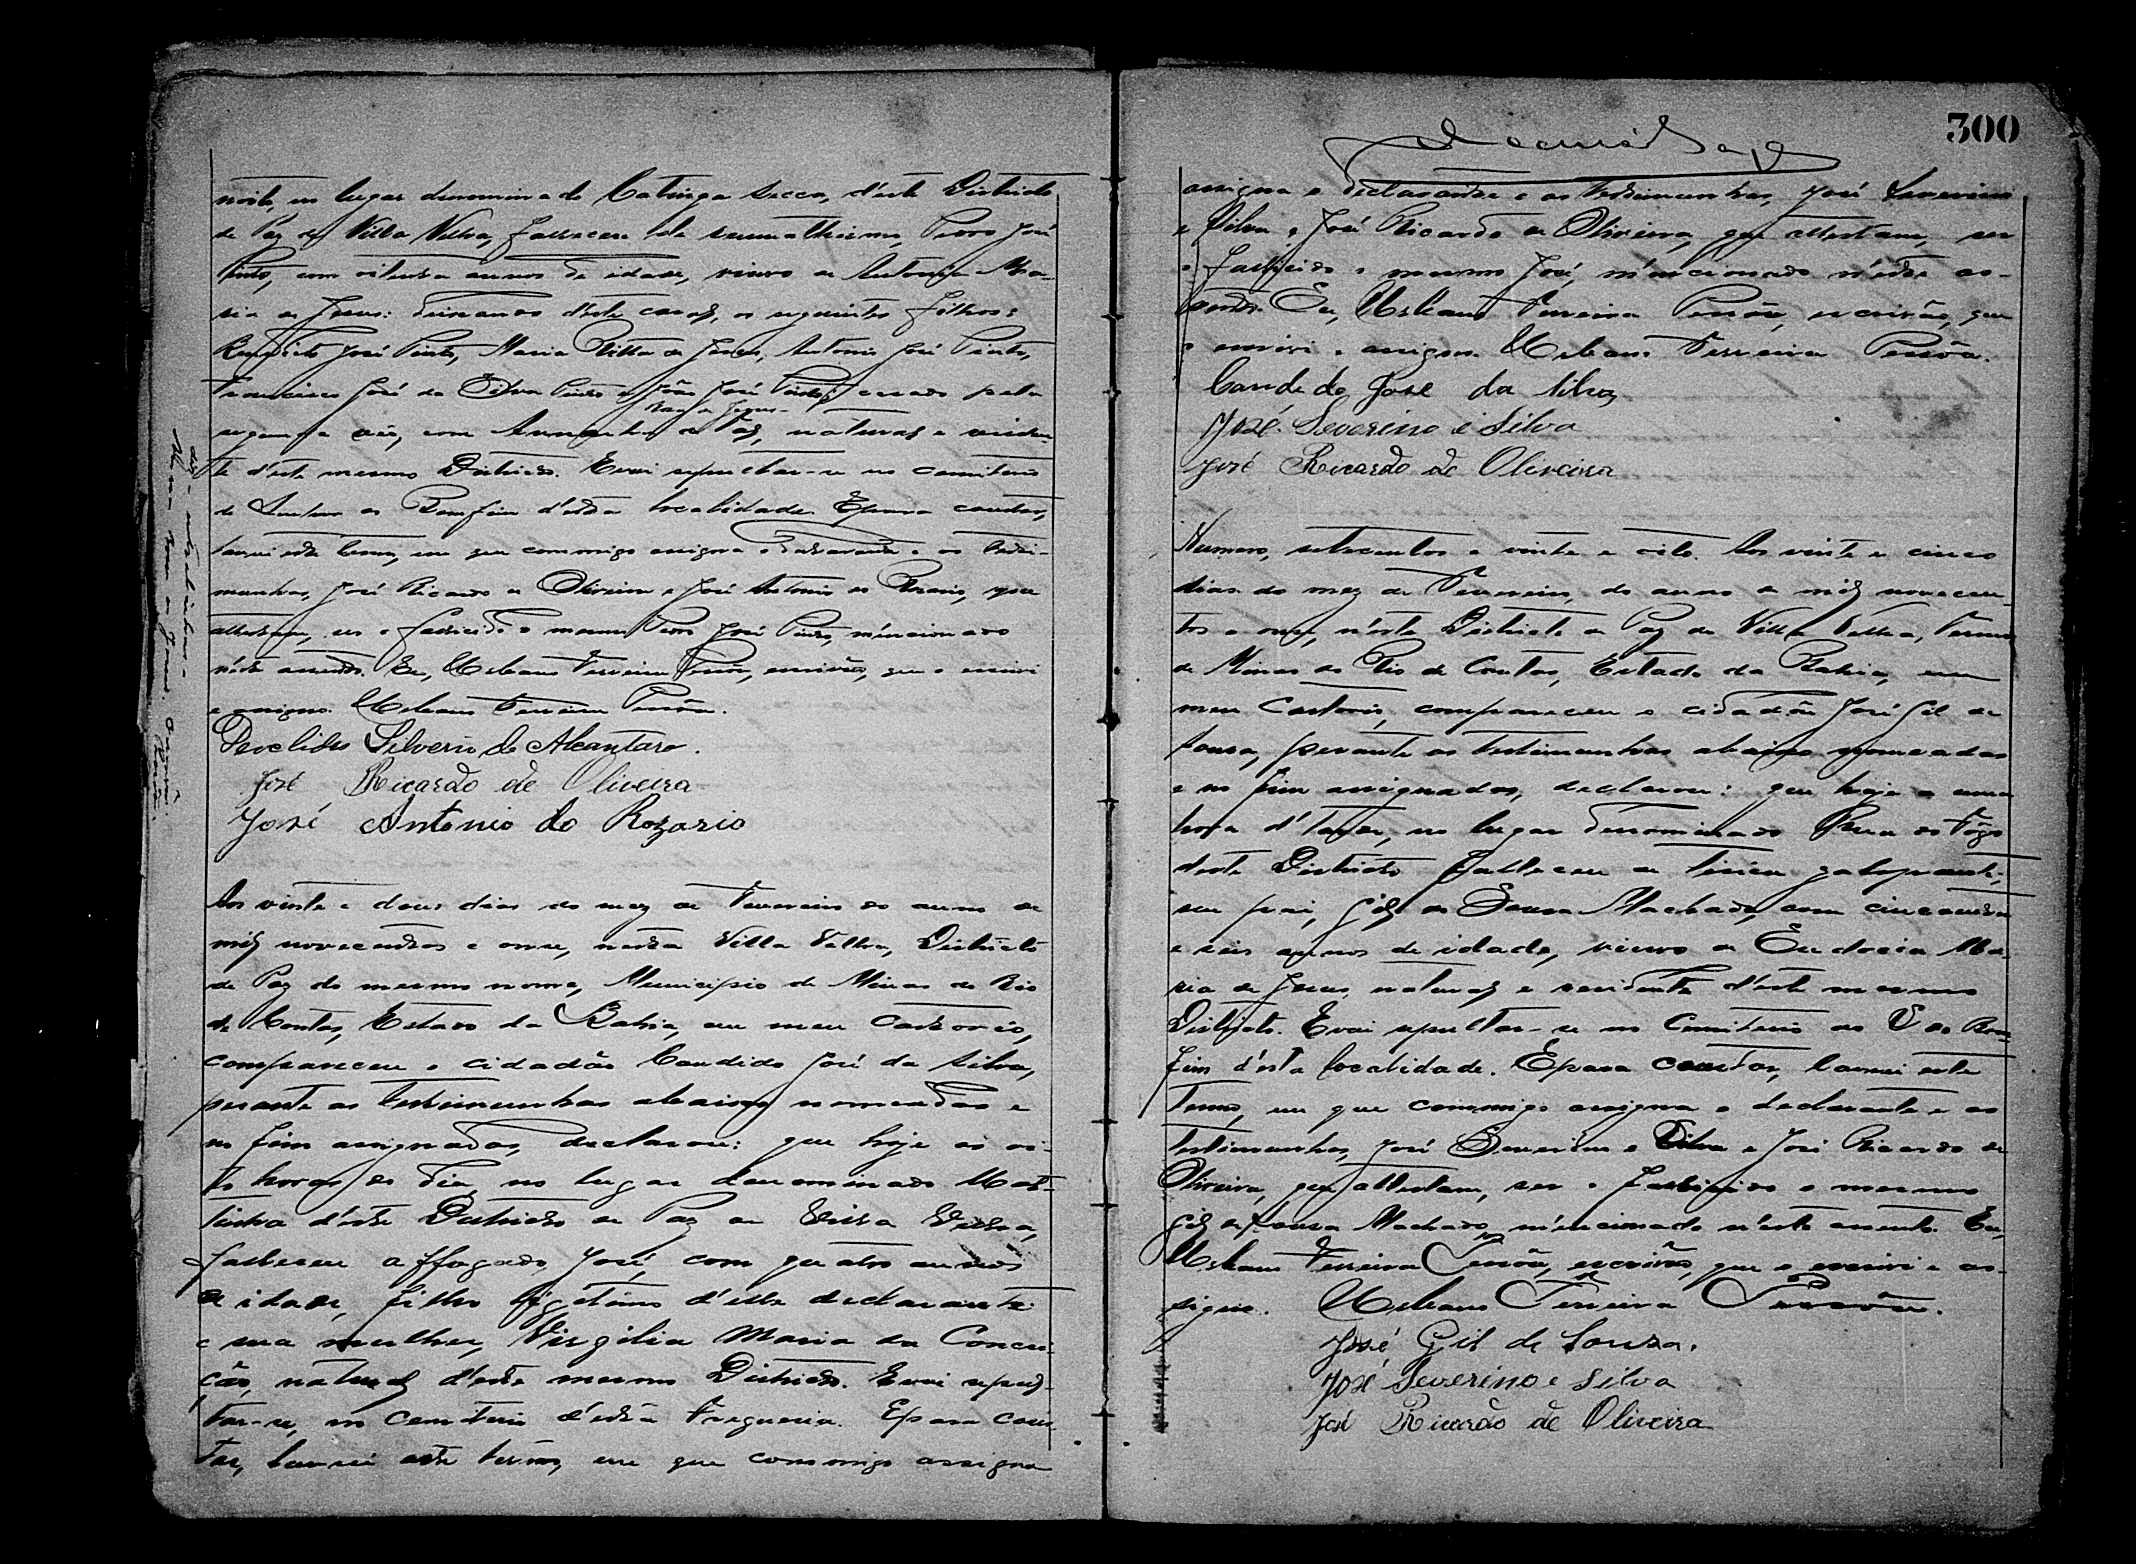 noite, no lugar denominado Catinga Secca, d'este Districto
de Paz de Villa Velha, falleceu de rheumathismo, José
Pinto, com oitenta annos de idade, viuvo de Antonia Ma-
ria de Jesus: deixando d'este casal, os seguintes filhos:
José Pinto, Maria Ritta de Jesus, Antonio José Pinto,
Francisco José da Silva Pinto e João José Pinto, casado pela
segunda vez, com natural e residen-
te d'este mesmo Districto. E vai sepultar-se no cemiterio
do Senhor do Bomfim d'esta localidade. E para constar,
lavrei este termo, em que commigo assigna o declarante e as teste-
munhas, José Ricardo de Oliveira e José Antonio do Rosario, que
attestam, ser o fallecido o mesmo José Pinto, mencionado
n'este assento. Eu, Urbano Ferreira Pessôa, escrivão, que o escrevi
e assigno. Urbano Ferreira Pessôa.
Silverio de Alcantara.
José Ricardo de Oliveira
José Antonio do Rozario
Aos vinte e dous dias do mez de Fevereiro do anno de
mil novecentos e onze, nesta Villa Velha, Districto
de Paz do mesmo nome, Municipio de Minas do Rio
de Contas, Estado da Bahia, em meu Cartorio,
compareceu o cidadão Candido José da Silva,
perante as testemunhas abaixo nomeadas e
no fim assignadas, declarou: que hoje as oi-
to horas do dia, no lugar denominado
d'este Districto de Paz de Villa Velha,
falleceu affogado José, com quatro annos
de idade, filho legitimo d'elle declarante
e sua mulher, Virgilia Maria da Concei-
ção, natural d'este mesmo Districto. E vai sepul-
tar-se, no cemiterio d'esta Freguesia. E para cons-
tar, lavrei este termo, em que commigo assigna
300
assigna o declarante e as testemunhas, José Severino
e Silva e José Ricardo de Oliveira, que attestam, ser
o fallecido o mesmo José, mencionado n'este as-
sento. Eu, Urbano Ferreira Pessôa, escrivão, que
o escrevi e assigno. Urbano Ferreira Pessôa.
Candido José da Silva
José Severino e Silva
José Ricardo de Oliveira
Numero, setecentos e vinte e oito. Aos vinte e cinco
dias do mez de Fevereiro, do anno de mil novecen-
tos e onze, n'este Districto de Paz de Villa Velha, Termo
de Minas do Rio de Contas, Estado da Bahia, em
meu Cartorio, compareceu o cidadão José Gil de
Souza, perante as testemunhas abaixo nomeadas
e no fim assignadas, declarou: que hoje a uma
hora d'tarde, no lugar denominado do Fogo
deste Districto falleceu de tisica galopante,
seu pai, Gil de Souza Machado, com cincoenta
e seis annos de idade, viuvo de Eudocia Ma-
ria de Jesus, natural e residente d'este mesmo
Districto. E vai sepultar-se no Cemiterio do S do Bom-
fim d'esta localidade. E para constar, lavrei este
Termo, em que commigo assigna o declarante e as
testemunhas, José Severino e Silva e José Ricardo de
Oliveira, que attestam, ser o fallecido o mesmo
Gil de Souza Machado, mencionado n'este assento. Eu,
Urbano Ferreira Pessôa, escrivão, que o escrevi e as-
signo. Urbano Ferreira Pessôa.
José Gil de Souza.
José Severino e Silva
José Ricardo de Oliveira